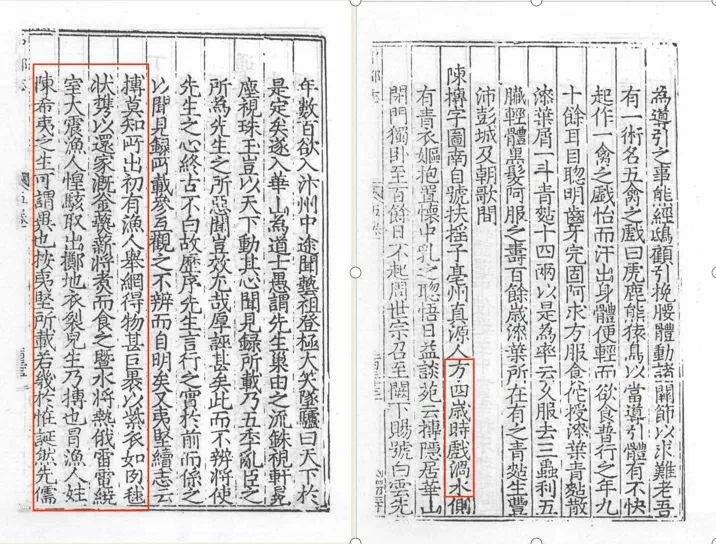 為導引之事能經鴟顧引挽腰體動諸關節以求難老吾
有一術名五禽之戲曰虎鹿熊猿鳥以當導引體有不快
起作一禽之戲怡而汗出身體便輕而欲食普行之年九
十餘耳目聰明齒牙完固阿求方服食佗授漆葉青黏散
漆葉屑一斗青黏十四兩以是為率云久服去三蟲利五
臟輕體黑髮阿服之壽百餘歲漆葉所在有之青黏生豐
沛彭城及朝歌間
陳摶字圖南自號扶搖子亳州真源人方四歲時戲渦水側
有青衣嫗抱置懷中乳之聰悟日益談苑云摶隱居華山
閉門獨卧至百餘日不起周世宗召至闕下賜號白雲先
年數百欲入汴州中途聞藝祖登極大笑墜驢曰天下於
是定矣遂入華山為道士愚謂先生巢由之流銖視軒冕
塵視珠玉豈以天下動其心聞見錄所載乃五季亂臣之
所為先生之所惡聞豈效尤哉厚誣甚矣此而不辨將使
先生之心終古不白故歷序先生言行之實於前而係之
以聞見錄所載參互觀之不辨而自明矣又夷堅續志云
摶莫知所出初有漁人舉網得物甚巨裹以紫衣如肉毬
狀携以還家溉釜爇薪將煮而食之暨水將熱俄雷電繞
室大震漁人惶駭取出擲地衣裂兒生乃摶也冒漁人姓
陳希夷之生可謂異也按夷堅所載若幾於怪誕然先儒